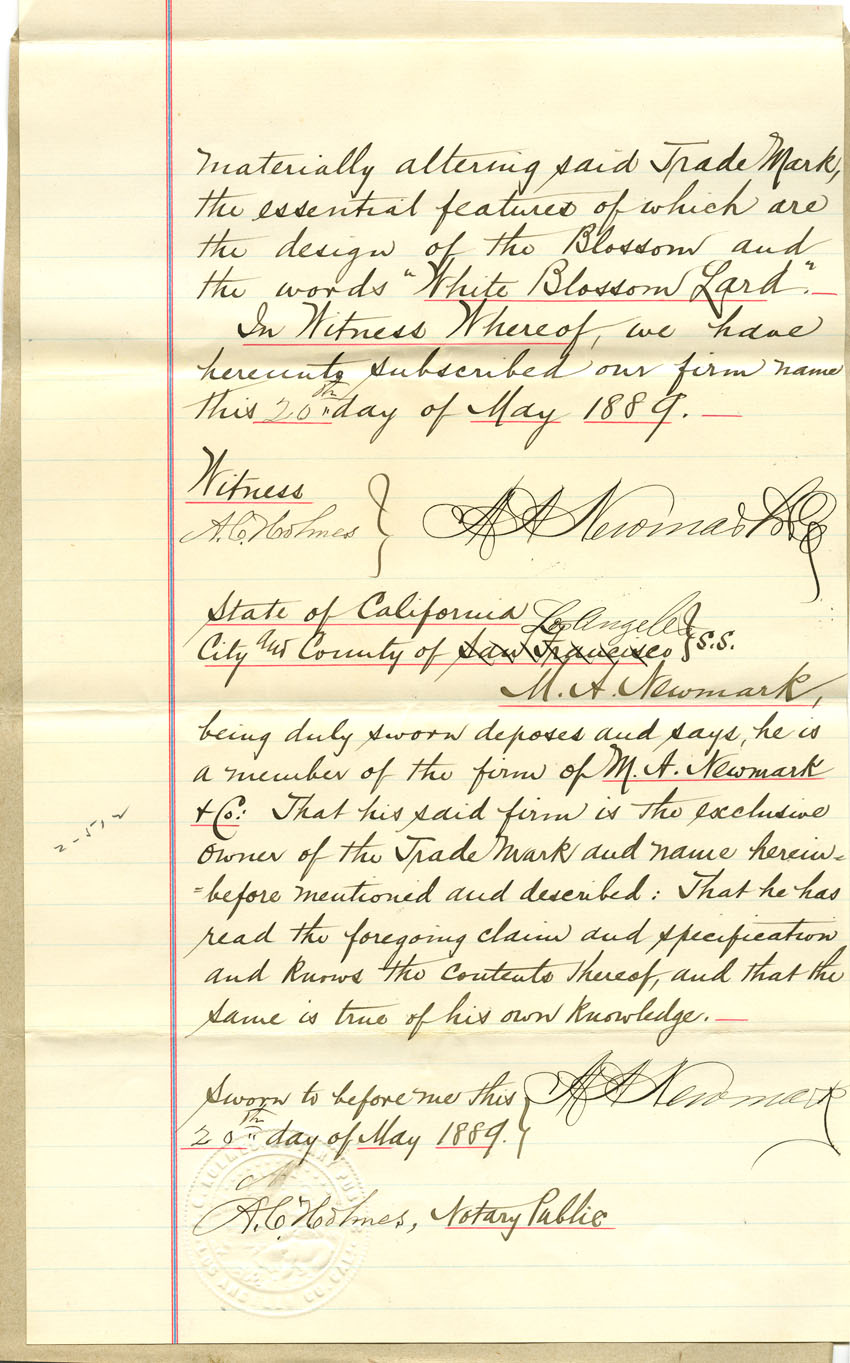 materially altering said Trade Mark,
the essential features of which are
the design of the Blossom and
the words "White Blossom Lard".—
In Witness Whereof, we have
hereunto subscribed our firm name
this 20th day of May 1889. —
Witness
A.C. Holmes } M A Newmark & Co
State of California
Los Angeles
City and County of San Francisco } S.S.
M. A. Newmark,
being duly sworn deposes and says, he is
a member of the firm of M. A. Newmark
& Co: That his said firm is the exclusive
owner of the Trade Mark and name herein=
=before mentioned and described: That he has
read the foregoing claim and specification
and knows the contents thereof, and that the
same is true of his own knowledge. —
Sworn to before me this } M A Newmark
20th day of May 1889.
A.C. Holmes, Notary Public